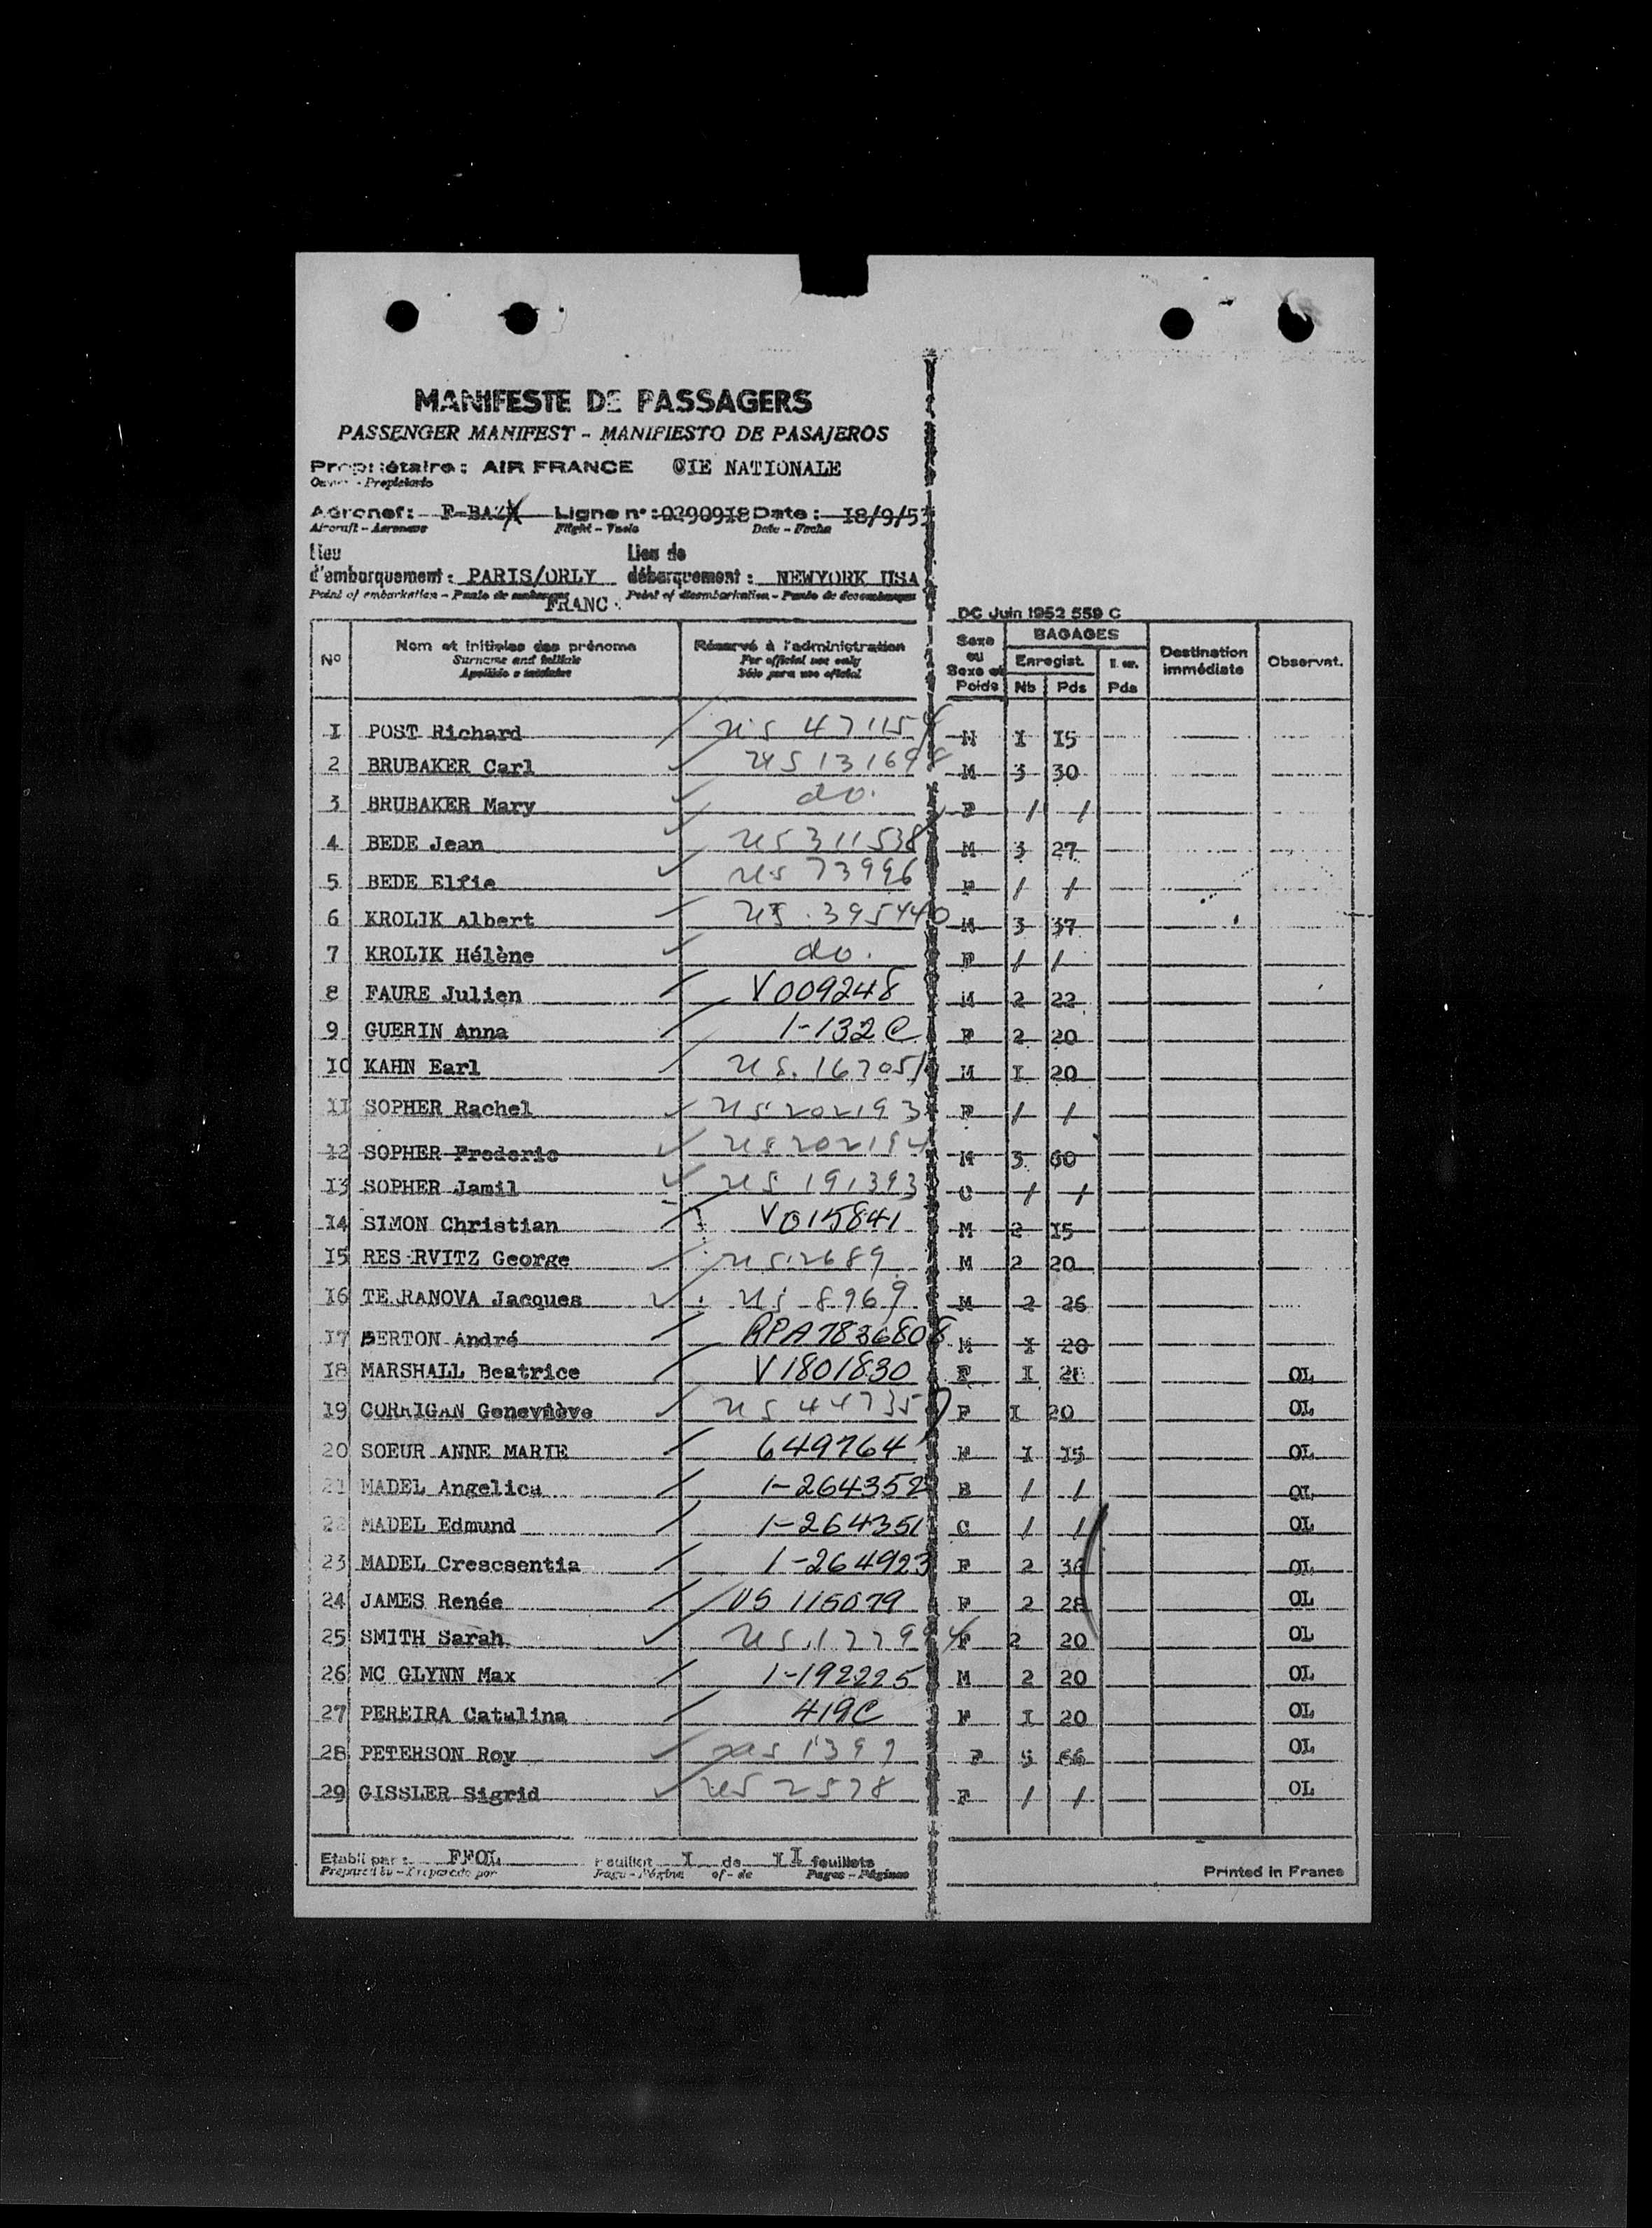 MANIFESTE DE PASSAGERS
PASSENGER MANIFEST - MANIFIESTO DE PASAJEROS
Propriétaire : AIR FRANCE CIE NATIONALE
Owner - Propietario
Aéronef : F-BAZX Ligne n° : 0290918 Date : 18/9/53
Aircraft - Aeronave Flight - Vuelo Date - Fecha
Lieu Lieu de
d'embarquement : PARIS/ORLY débarquement : NEWYORK USA
Point of embarkation - Punto de embarque Point of disembarkation - Punto de desembarque
FRANC
DC Juin 1952 559 C
N° Nom et initiales des prénoms Réservé à l'administration Sexe ou Sexe et Poids BAGAGES Destination immédiate Observat.
Surname and initials For official use only Enregist.
Apellido e iniciales Sólo para uso oficial Nb Pds Pds
I POST Richard US 471154 M I I5
2 BRUBAKER Carl US 131698 M 3 30
3 BRUBAKER Mary do. F / /
4 BEDE Jean US 311538 M 3 27
5 BEDE Elfie US 73996 F / /
6 KROLIK Albert US. 395440 M 3 37
7 KROLIK Hélène do. F / /
8 FAURE Julien V009248 M 2 22
9 GUERIN Anna 1-132 C F 2 20
I0 KAHN Earl US. 167051 M I 20
II SOPHER Rachel US 202193 F / /
I2 SOPHER Frederic US 202194 M 3 60
I3 SOPHER Jamil US 191393 C / /
I4 SIMON Christian V015841 M 2 I5
I5 RES RVITZ George US.2689 M 2 20
I6 TE RANOVA Jacques US 8969 M 2 26
I7 BERTON André RPA7836808 M I 20
I8 MARSHALL Beatrice V1801830 F I OL
I9 CORRIGAN Geneviève US 447357 F I 20 OL
20 SOEUR ANNE MARIE 649764 F I I5 OL
21 MADEL Angelica 1-264352 B / / OL
22 MADEL Edmund 1-264351 C / / OL
23 MADEL Crescsentia 1-264923 F 2 36 OL
24 JAMES Renée US 115079 F 2 28 OL
25 SMITH Sarah US.177994 F 2 20 OL
26 MC GLYNN Max 1-192225 M 2 20 OL
27 PEREIRA Catalina 419C F I 20 OL
28 PETERSON Roy US 1399 F 5 66 OL
29 GISSLER Sigrid US 2578 F / / OL
Etabli par : FFOL Feuillet I de II feuillets
Prepared by - Preparado por Page - Página of - de Pages - Páginas
Printed in France